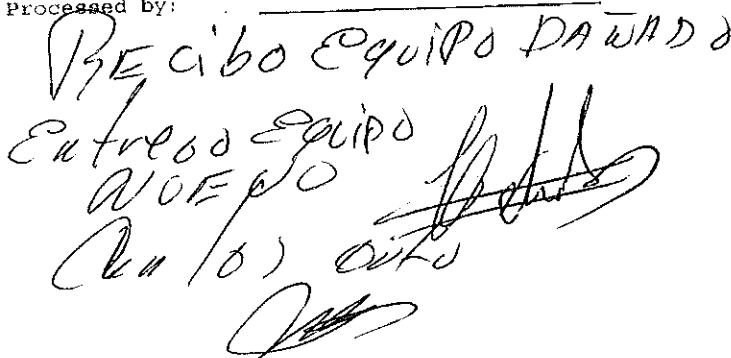 Processed by:
RECibo EquiPO DAÑADO
Entrego Equipo
NUEVO
Carlos